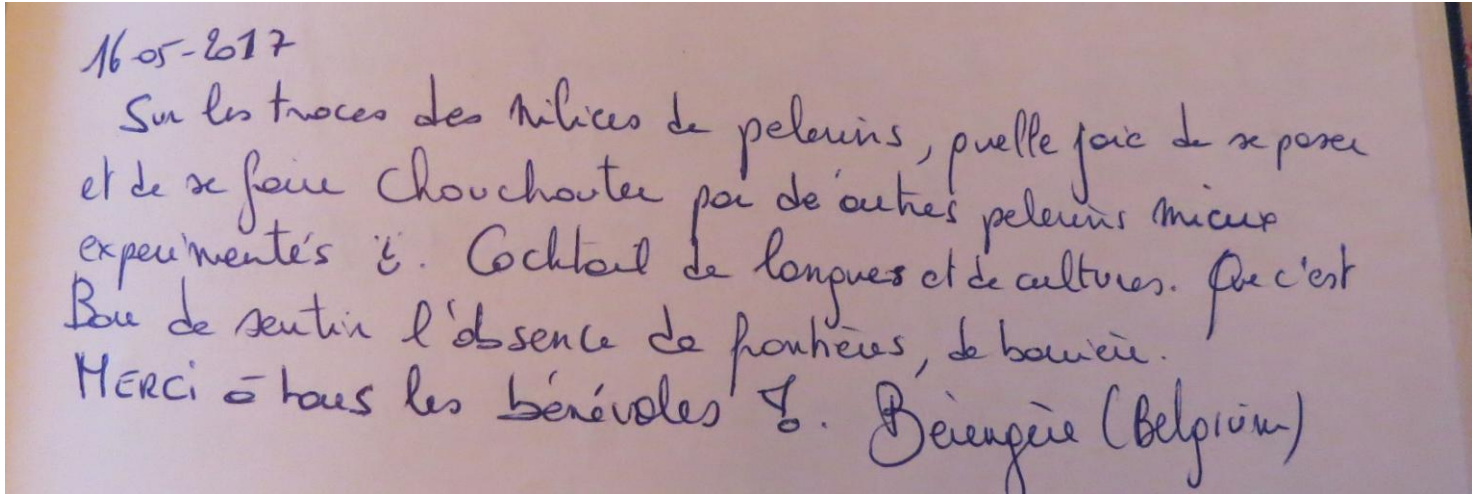 16-05-2017
Sur les traces des milices de pelerins, quelle joie de se poser
et de se faire chouchouter par de autres pelerins mieux
experimentés !. Cocktail de langues et de cultures. Que c'est
Bon de sentir l'absence de frontières, de barrière.
MERCI à tous les bénévoles !. Bérengère (Belgium)